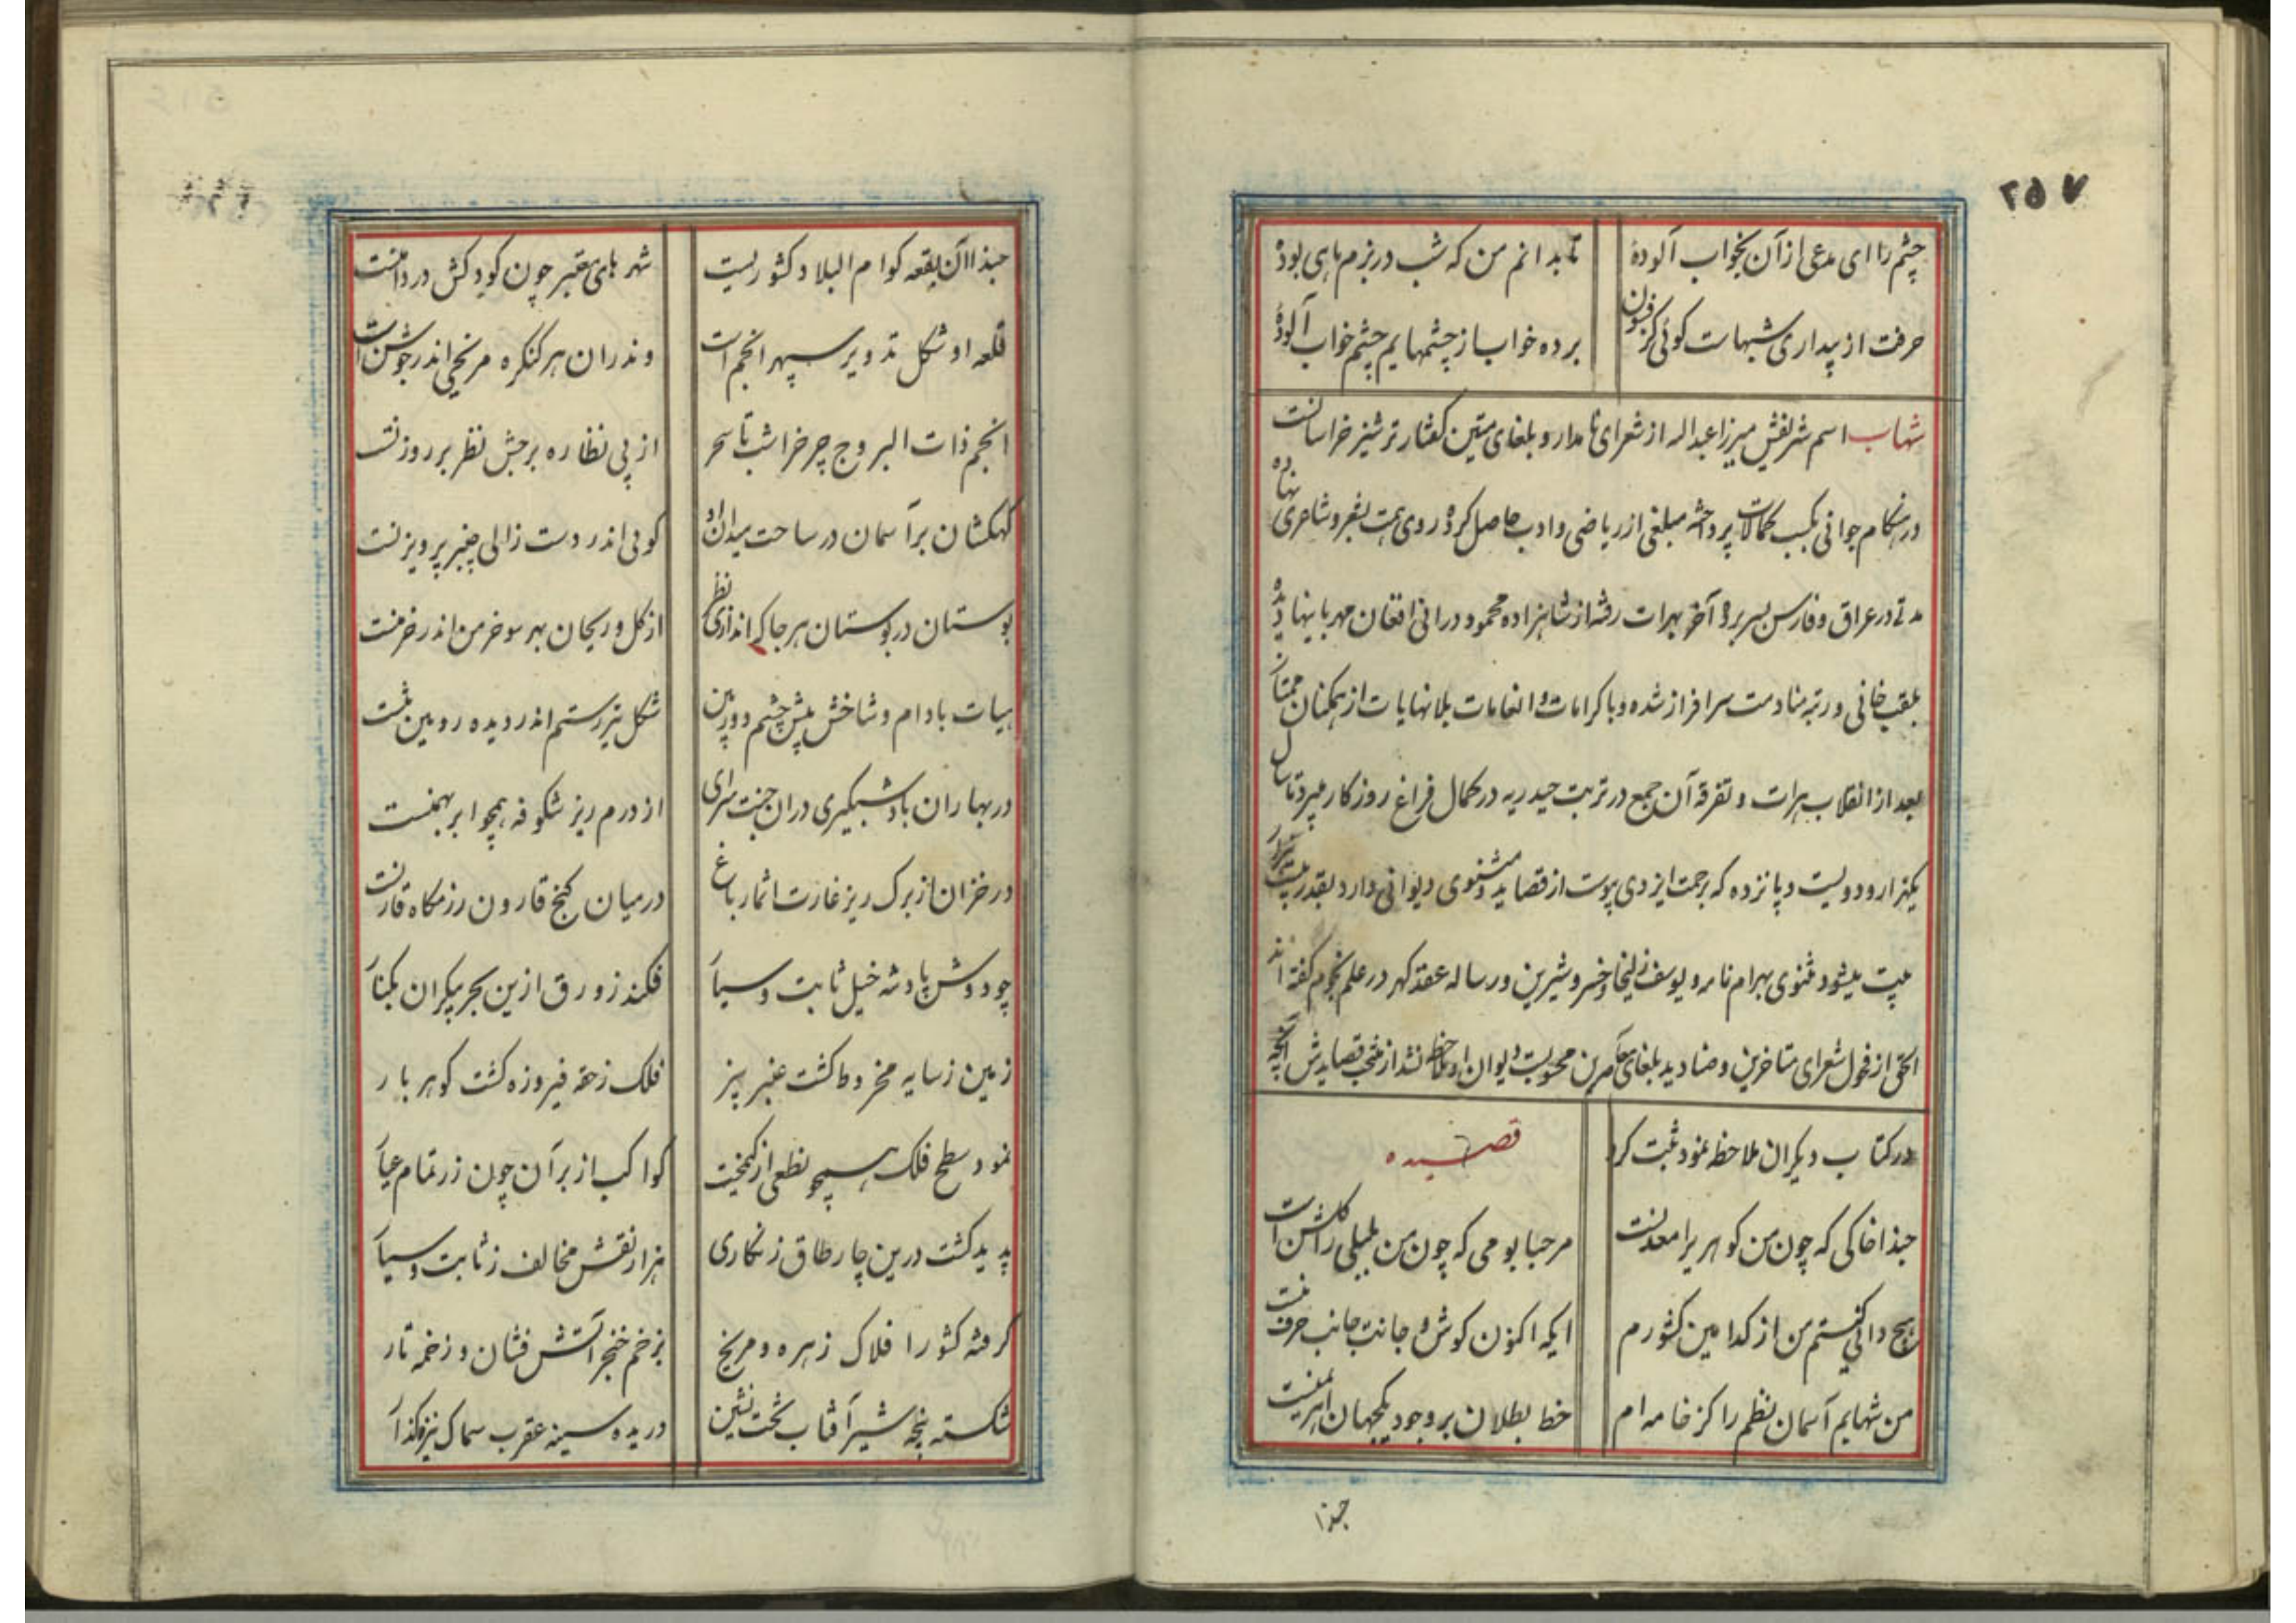 ۲۵۷
چشم را ای مدعی از آن بخواب آلودهٔ
تا بدانم من که شب در بزم ماهی بودهٔ
حرفت از بیداری شبهاست گوئی کز فسون
برده خواب از چشمهایم چشم خواب آلودهٔ
شهاب اسم شریفش میرزا عبداله از شعرای نامدار و بلغای متین گفتار ترشیز خراسانست
در هنگام جوانی بکسب کمالات پرداخته مبلغی از ریاضی و ادب حاصل کرده روی همت بشعر و شاعری نهاده
مدتی در عراق و فارس بسر برده آخر بهرات رفته از شاهزاده محمود درانی افغان مهربانیها دیده
بلقب خانی و رتبه منادمت سرافراز شده و با کرامات و انعامات بلانهایات از همکنان ممتاز
بعد از انقلاب هرات و تفرقه آن جمع در تربت حیدریه در کمال فراغ روزگار میبرد تا سال
یکهزار و دویست و پانزده که برحمت ایزدی پیوست از قصاید و مثنوی دیوانی دارد بقدر بیست هزار
بیت میشود مثنوی بهرام نامه و یوسف زلیخا و خسرو شیرین و رساله عقد کهر در علم نجوم گفته اند
الحق از فحول شعرای متاخرین و صنادید بلغای معاصرین محسوبست و دیوان او ملاحظه نشد از منتخب قصایدش آنچه
در کتاب دیگران ملاحظه نمود ثبت کرد
قصیده
حبذا خاکی که چون من کوهر یرا معدنست
مرحبا بومی که چون من بلبلی را گلشن است
هیچ دانی کیستم من از کدامین کشورم
ایکه اکنون کوش و جانت جانب حرف منست
من شهابم آسمان نظم را کز خامه ام
خط بطلان بر وجود یکجهان اهریمنست
حبذا
حبذا آن بقعه کو ام البلاد کشوریست
شهرهای معتبر چون کودکش در دامنست
قلعه او شکل تدویر سپهر انجم است
وندران هر کنکره مریخی اندر جوشن است
انجم ذات البروج چرخ را شب تا سحر
از پی نظاره برجش نظر بر روزنست
کهکشان بر آسمان در ساحت میدان او
کوئی اندر دست زالی چنبر پرویزنست
بوستان در بوستان هر جا که اندازی نظر
از کل و ریحان بهر سو خرمن اندر خرمنست
هیات بادام و شاخش پیش چشم دوربین
شکل تیر رستم اندر دیده روئین تنست
در بهاران باد شبکیری در ان جنت سرای
از درم ریز شکوفه همچو ابر بهمنست
در خزان از برک ریز غارت اثمار باغ
در میان کنج قارون رزمکاه قارنست
چو دوش پادشه خیل ثابت و سیار
فکند زورق ازین بحر بیکران بکنار
زمین ز سایه مخروط کشت عنبر بیز
فلک ز حقه فیروزه کشت کوهر بار
نمود سطح فلک همچو نطعی از کیمخت
کواکب از بر آن چون زر تمام عیار
پدید کشت درین چار طاق زنکاری
هزار نقش مخالف ز ثابت و سیار
کرفته کشور افلاک زهره و مریخ
بزخم خنجر آتش فشان و زخمه تار
شکسته پنجه شیر آفتاب تخت نشین
دریده سینه عقرب سماک نیزه گذار